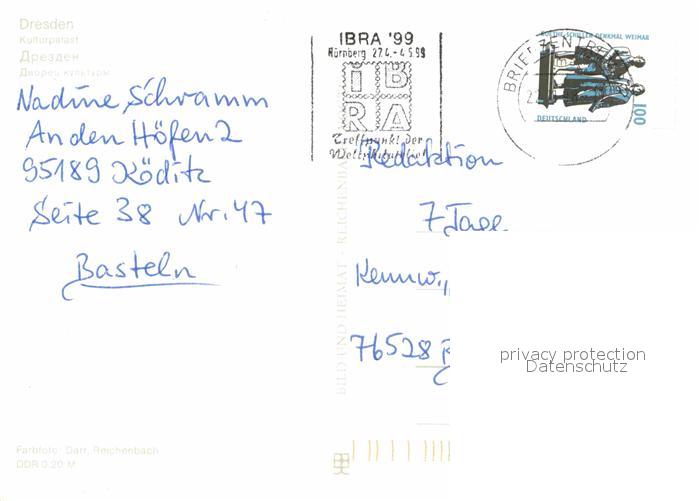 Dresden
Kulturpalast
Дрезден
Дворец культуры
Nadine Schramm
An den Höfen 2
95189 Köditz
Seite 38 Nr. 47
Basteln
Farbfoto: Darr, Reichenbach
DDR 0.20 M
BILD UND HEIMAT · REICHENBA
IBRA '99
Nürnberg 27.4.-4.5.99
IB
RA
Treffpunkt der
BRIEFZENTR
GOETHE-SCHILLER-DENKMAL WEIMAR
100
DEUTSCHLAND
Redaktion
7 Tage
Kennw.,
76528
privacy protection
Datenschutz